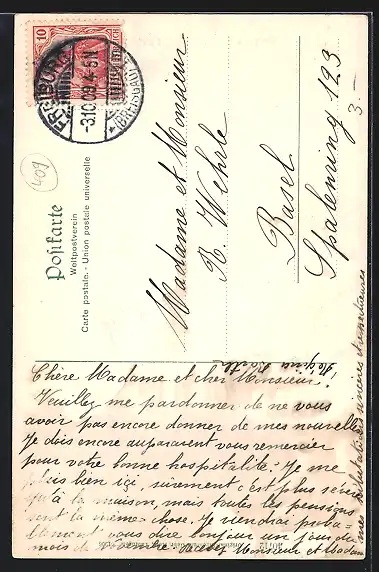 10
FREIBURG
-3.10.09.4-5N
(BREISGAU)
409
Postkarte
Weltpostverein
Carte postale. - Union postale universelle
Madame et Monsieur
R. Wehrle
Basel
Spalenring 123
3.-
Chère Madame et cher Monsieur!
Veuillez me pardonner de ne vous
avoir pas encore donner de mes nouvelles
Je dois encore auparavent vous remercier
pour votre bonne hospitalité. Je me
plais bien ici, surement c'est plus sévère
qu'à la maison, mais toutes les pensions
sont la même chose. Je viendrai proba-
blement vous dire bonjour un jour du
mois de Monsieur et Madame
mes salutations sincères et respectueuses
Regina